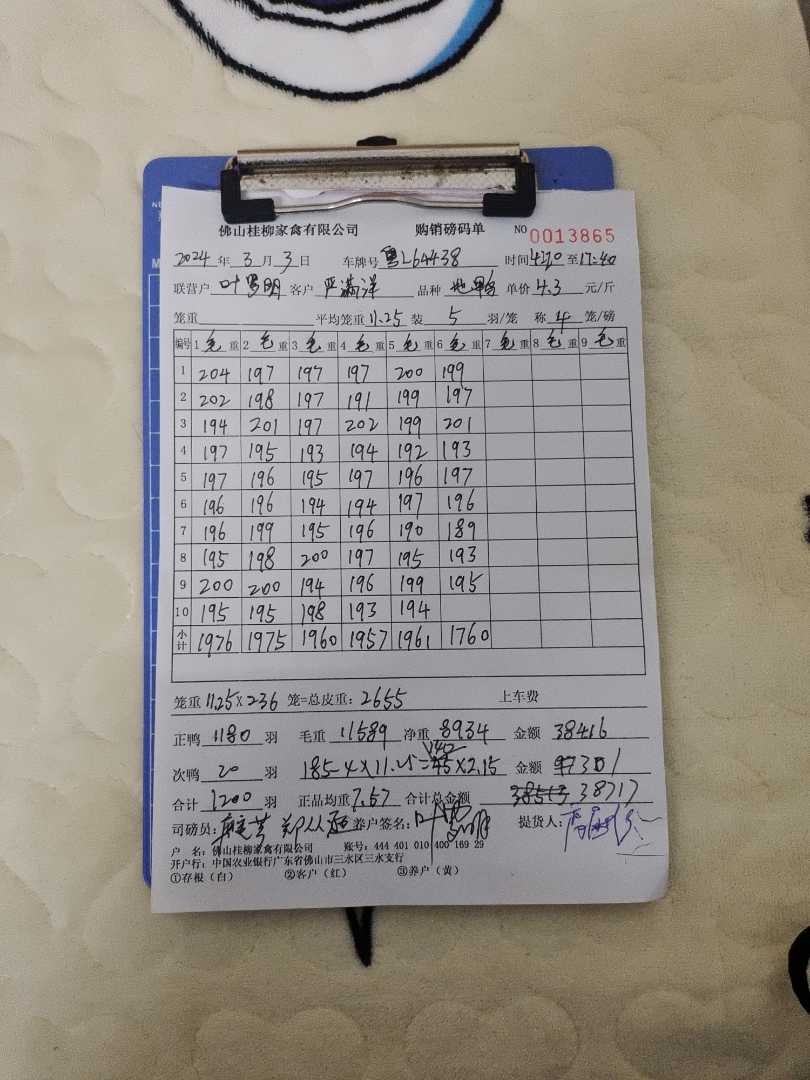 佛山桂柳家禽有限公司 购销磅码单 NO 0013865
2024年3月3日 车牌号 粤L64438 时间 至17:40
联营户 叶罗明 客户 严满洋 品种 地鸭 单价 4.3 元/斤
笼重 平均笼重 11.25 装 5 羽/笼 称 4 笼/磅
编号 1毛重 2毛重 3毛重 4毛重 5毛重 6毛重 7毛重 8毛重 9毛重
1 204 197 197 197 200 199
2 202 198 197 191 199 197
3 194 201 197 202 199 201
4 197 195 193 194 192 193
5 197 196 195 197 196 197
6 196 196 194 194 197 196
7 196 199 195 196 190 189
8 195 198 200 197 195 193
9 200 200 194 196 199 195
10 195 195 198 193 194
小计 1976 1975 1960 1957 1961 1760
笼重 11.25×236 笼=总皮重：2655 上车费
正鸭 1180 羽 毛重 11589 净重 8934 金额 38416
140
次鸭 20 羽 185-4×11.25=45×2.15 金额 301
合计 1200 羽 正品均重 7.57 合计总金额 38513 38717
司磅员： 养户签名：叶罗明 提货人：
户 名：佛山桂柳家禽有限公司 账号：444 401 010 400 169 29
开户行：中国农业银行广东省佛山市三水区三水支行
①存根（白） ②客户（红） ③养户（黄）